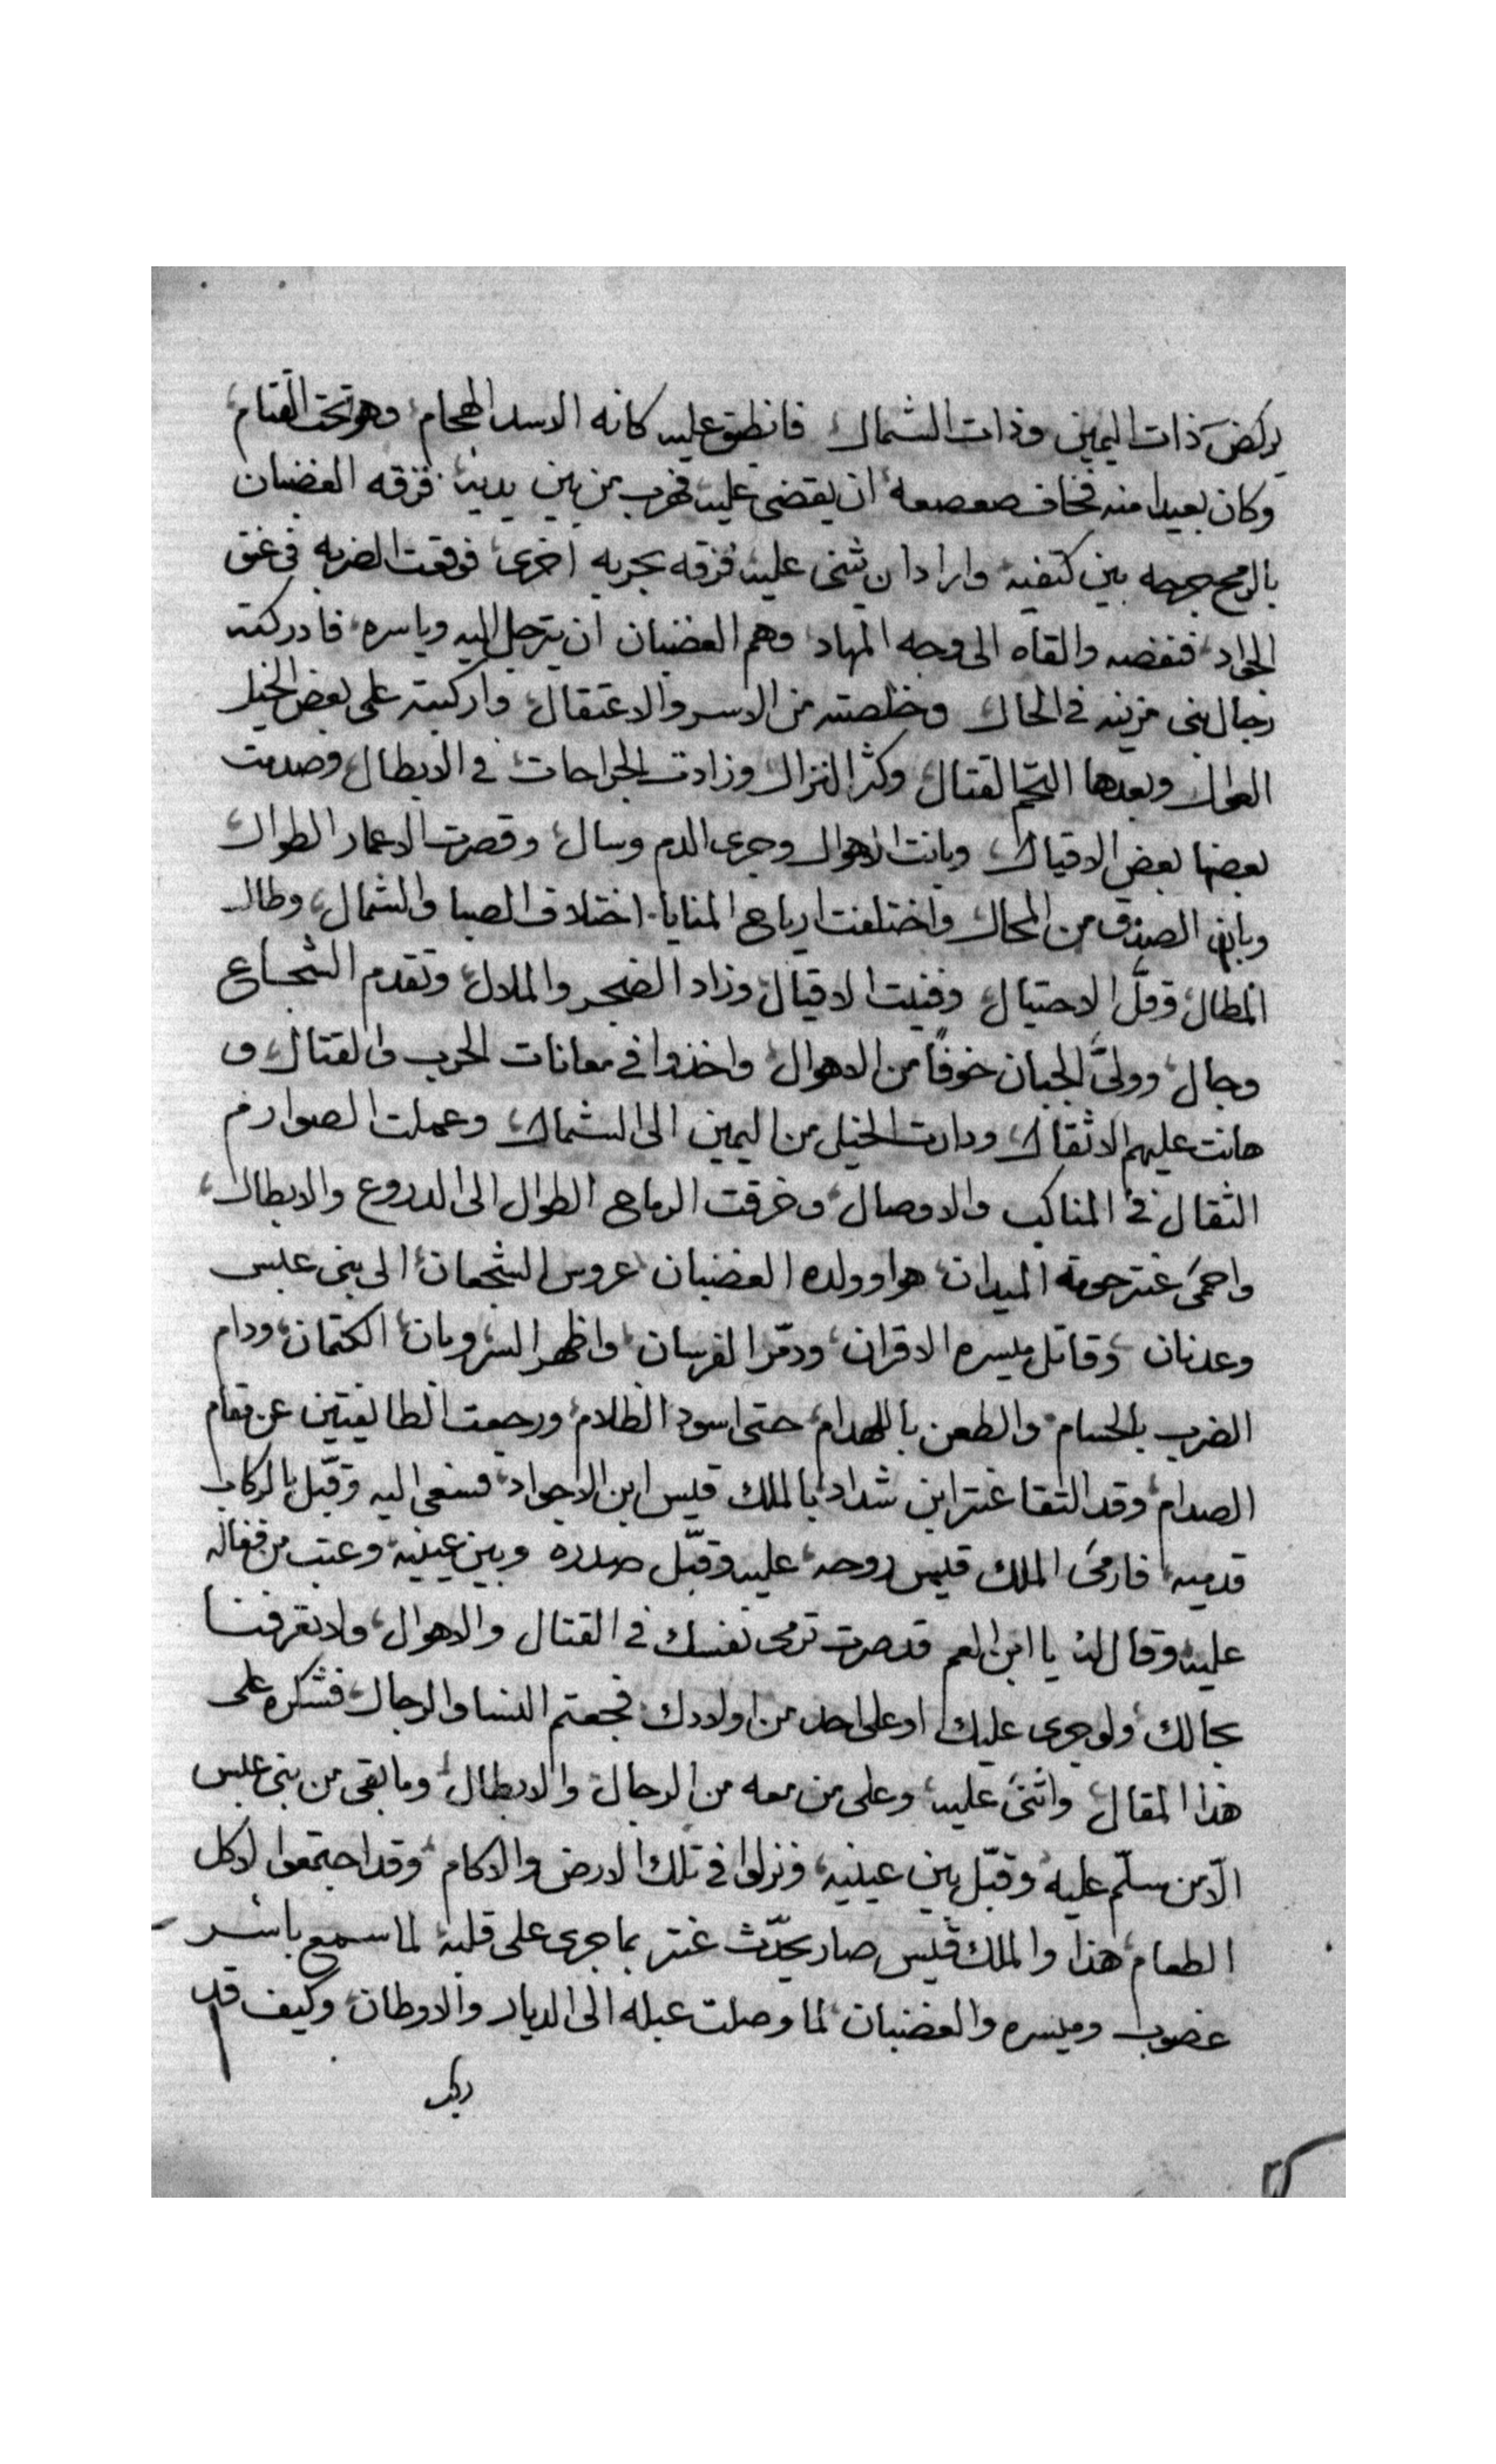 يركض ذات اليمين وذات الشمال فانطبق عليه كانه الاسد الهجام وهو تحت القتام
وكان بعيدا منه فخاف صعصعه ان يقضى عليه فهرب من بين يديه فزرقه الغضبان
بالرمح جرحه بين كتفيه واراد ان يثنى عليه فزرقه بحربه اخرى فوقعت الضربه فى عنق
الجواد فنفضه والقاه الى وجه المهاد وهم الغضبان ان يترجل اليه وياسره فادركته
رجال بنى مزينه فى الحال وخلصته من الاسر والاعتقال واركبته على بعض الخيل
العوال وبعدها التحم القتال وكثر النزال وزادت الجراحات فى الابطال وصدمت
بعضها بعض الاقيال وبانت الاهوال وجرى الدم وسال وقصرت الاعمار الطوال
وبان الصدق من المحال واختلفت ارياح المنايا اختلاف الصبا والشمال وطال
المطال وقلّ الاحتيال وفنيت الاقيال وزاد الضجر والملال وتقدم الشجاع
وجال وولىّ الجبان خوفاً من الاهوال واخذوا فى معانات الحرب والقتال و
هانت عليهم الاثقال ودارت الخيل من اليمين الى الشمال وعملت الصوارم
الثقال فى المناكب والاوصال وخرقت الرماح الطوال الى الدروع والابطال
واحمى عنتر حومة الميدان هوا وولده الغضبان عروس الشجعان الى بنى عبس
وعدنان وقاتل ميسره الاقران ودمّر الفرسان واظهر السر وبان الكتمان ودام
الضرب بالحسام والطعن باللهدام حتى اسود الظلام ورجعت الطايفتين عن مقام
الصدام وقد التقا عنتر ابن شداد بالملك قيس ابن الاجواد فسعى اليه وقبّل بالركاب
قدميه فارمى الملك قيس روحه عليه وقبّل صدره وبين عينيه وعتب من فعاله
عليه وقال له يا ابن العم قد صرت ترمى نفسك فى القتال والاهوال ولا تعرفنا
بحالك ولو جرى عليك او على احد من اولادك فجعتم النسا والرجال فشكره على
هذا المقال واثنى عليه وعلى من معه من الرجال والابطال وما بقى من بنى عبس
الّا من سلّم عليه وقبّل بين عينيه ونزلوا فى تلك الارض والاكام وقد اجتمعوا لاكل
الطعام هذا والملك قيس صار يحدّث عنتر بما جرى على قلبه لما سمع باسر
غصوب وميسره والغضبان لما وصلت عبله الى الديار والاوطان وكيف قد